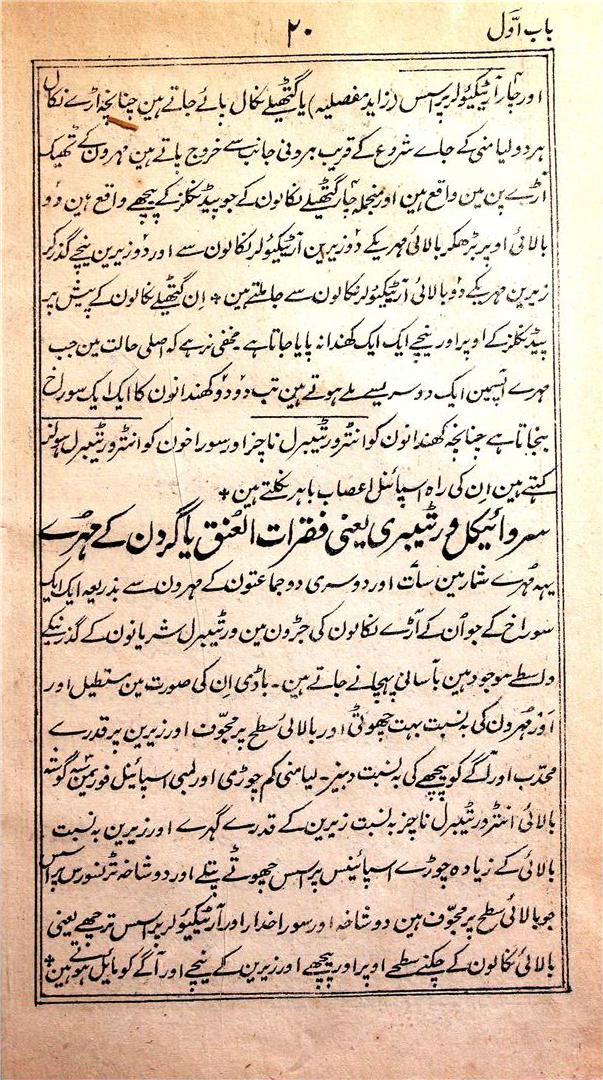 باب اوّل
۲۰
اور چار آرٹیکیولر پراسس (زاید مفصلیہ) یا گٹھیلے نکال پائے جاتے ہین چنانچہ اڑے نکال
ہر دو لیامنی کے جاے شروع کے قریب بیرونی جانب سے خروج پاتے ہین مہرون کے ٹھیک
اڑے پن مین واقع ہین اور منجملہ چار گٹھیلے نکالون کے جو پیڈنکلز کے پیچھے واقع ہین دو
بالائی اوپر بڑھکر بالائی مہریکے دو زیرین آرٹیکیولر نکالون سے اور دو زیرین نیچے گذر کر
زیرین مہریکے دو بالائی آرٹیکیولر نکالون سے جا ملتے ہین + اِن گٹھیلے نکالون کے پیش پر
پیڈنکلز کے اوپر اور نیچے ایک ایک کھندانہ پایا جاتا ہے مخفی نرہے کہ اصلی حالت مین جب
مہرے آپسمین ایک دوسریسے ملے ہوتے ہین تب دو دو کھندانون کا ایک ایک سوراخ
بنجاتا ہے چنانچہ کھندانون کو انٹرورٹیبرل ناچز اور سوراخون کو انٹرورٹیبرل ہولز
کہتے ہین اِن کی راہ اسپائنل اعصاب باہر نکلتے ہین +
سروائیکل ورٹیبری یعنی فقرات العُنق یا گردن کے مہُرے
یہہ مہُرے شمار مین سات اور دوسری دو جماعتون کے مہرون سے بذریعہ ایک ایک
سوراخ کے جو اُن کے آڑے نکالون کی جڑون مین ورٹیبرل شریانون کے گذرنیکے
واسطے موجود ہین بآسانی پہچانے جاتے ہین ۔ باڈی اِن کی صورت مین مستطیل اور
اَور مُہرون کی بہ نسبت بہت چھوٹی اور بالائی سطح پر مجوّف اور زیرین پر قدرے
محدّب اور آگے کو پیچھے کی بہ نسبت دبیز ۔ لیامنی کم چوڑی اور لمبی اسپائنل فوریمن سہ گوشہ
بالائی انٹرورٹیبرل ناچز بہ نسبت زیرین کے قدرے گہرے اور زیرین بہ نسبت
بالائی کے زیادہ چوڑے اسپائینس پراسس چھوٹے پتلے اور دو شاخہ ٹرنسورس پراسس
جو بالائی سطح پر مجوّف ہین دو شاخہ اور سوراخدار اور آرٹیکیولر پراسس ترچھے یعنی
بالائی نکالون کے چکنے سطحے اوپر اور پیچھے اور زیرین کے نیچے اور آگے کو مایل ہوتے ہین +